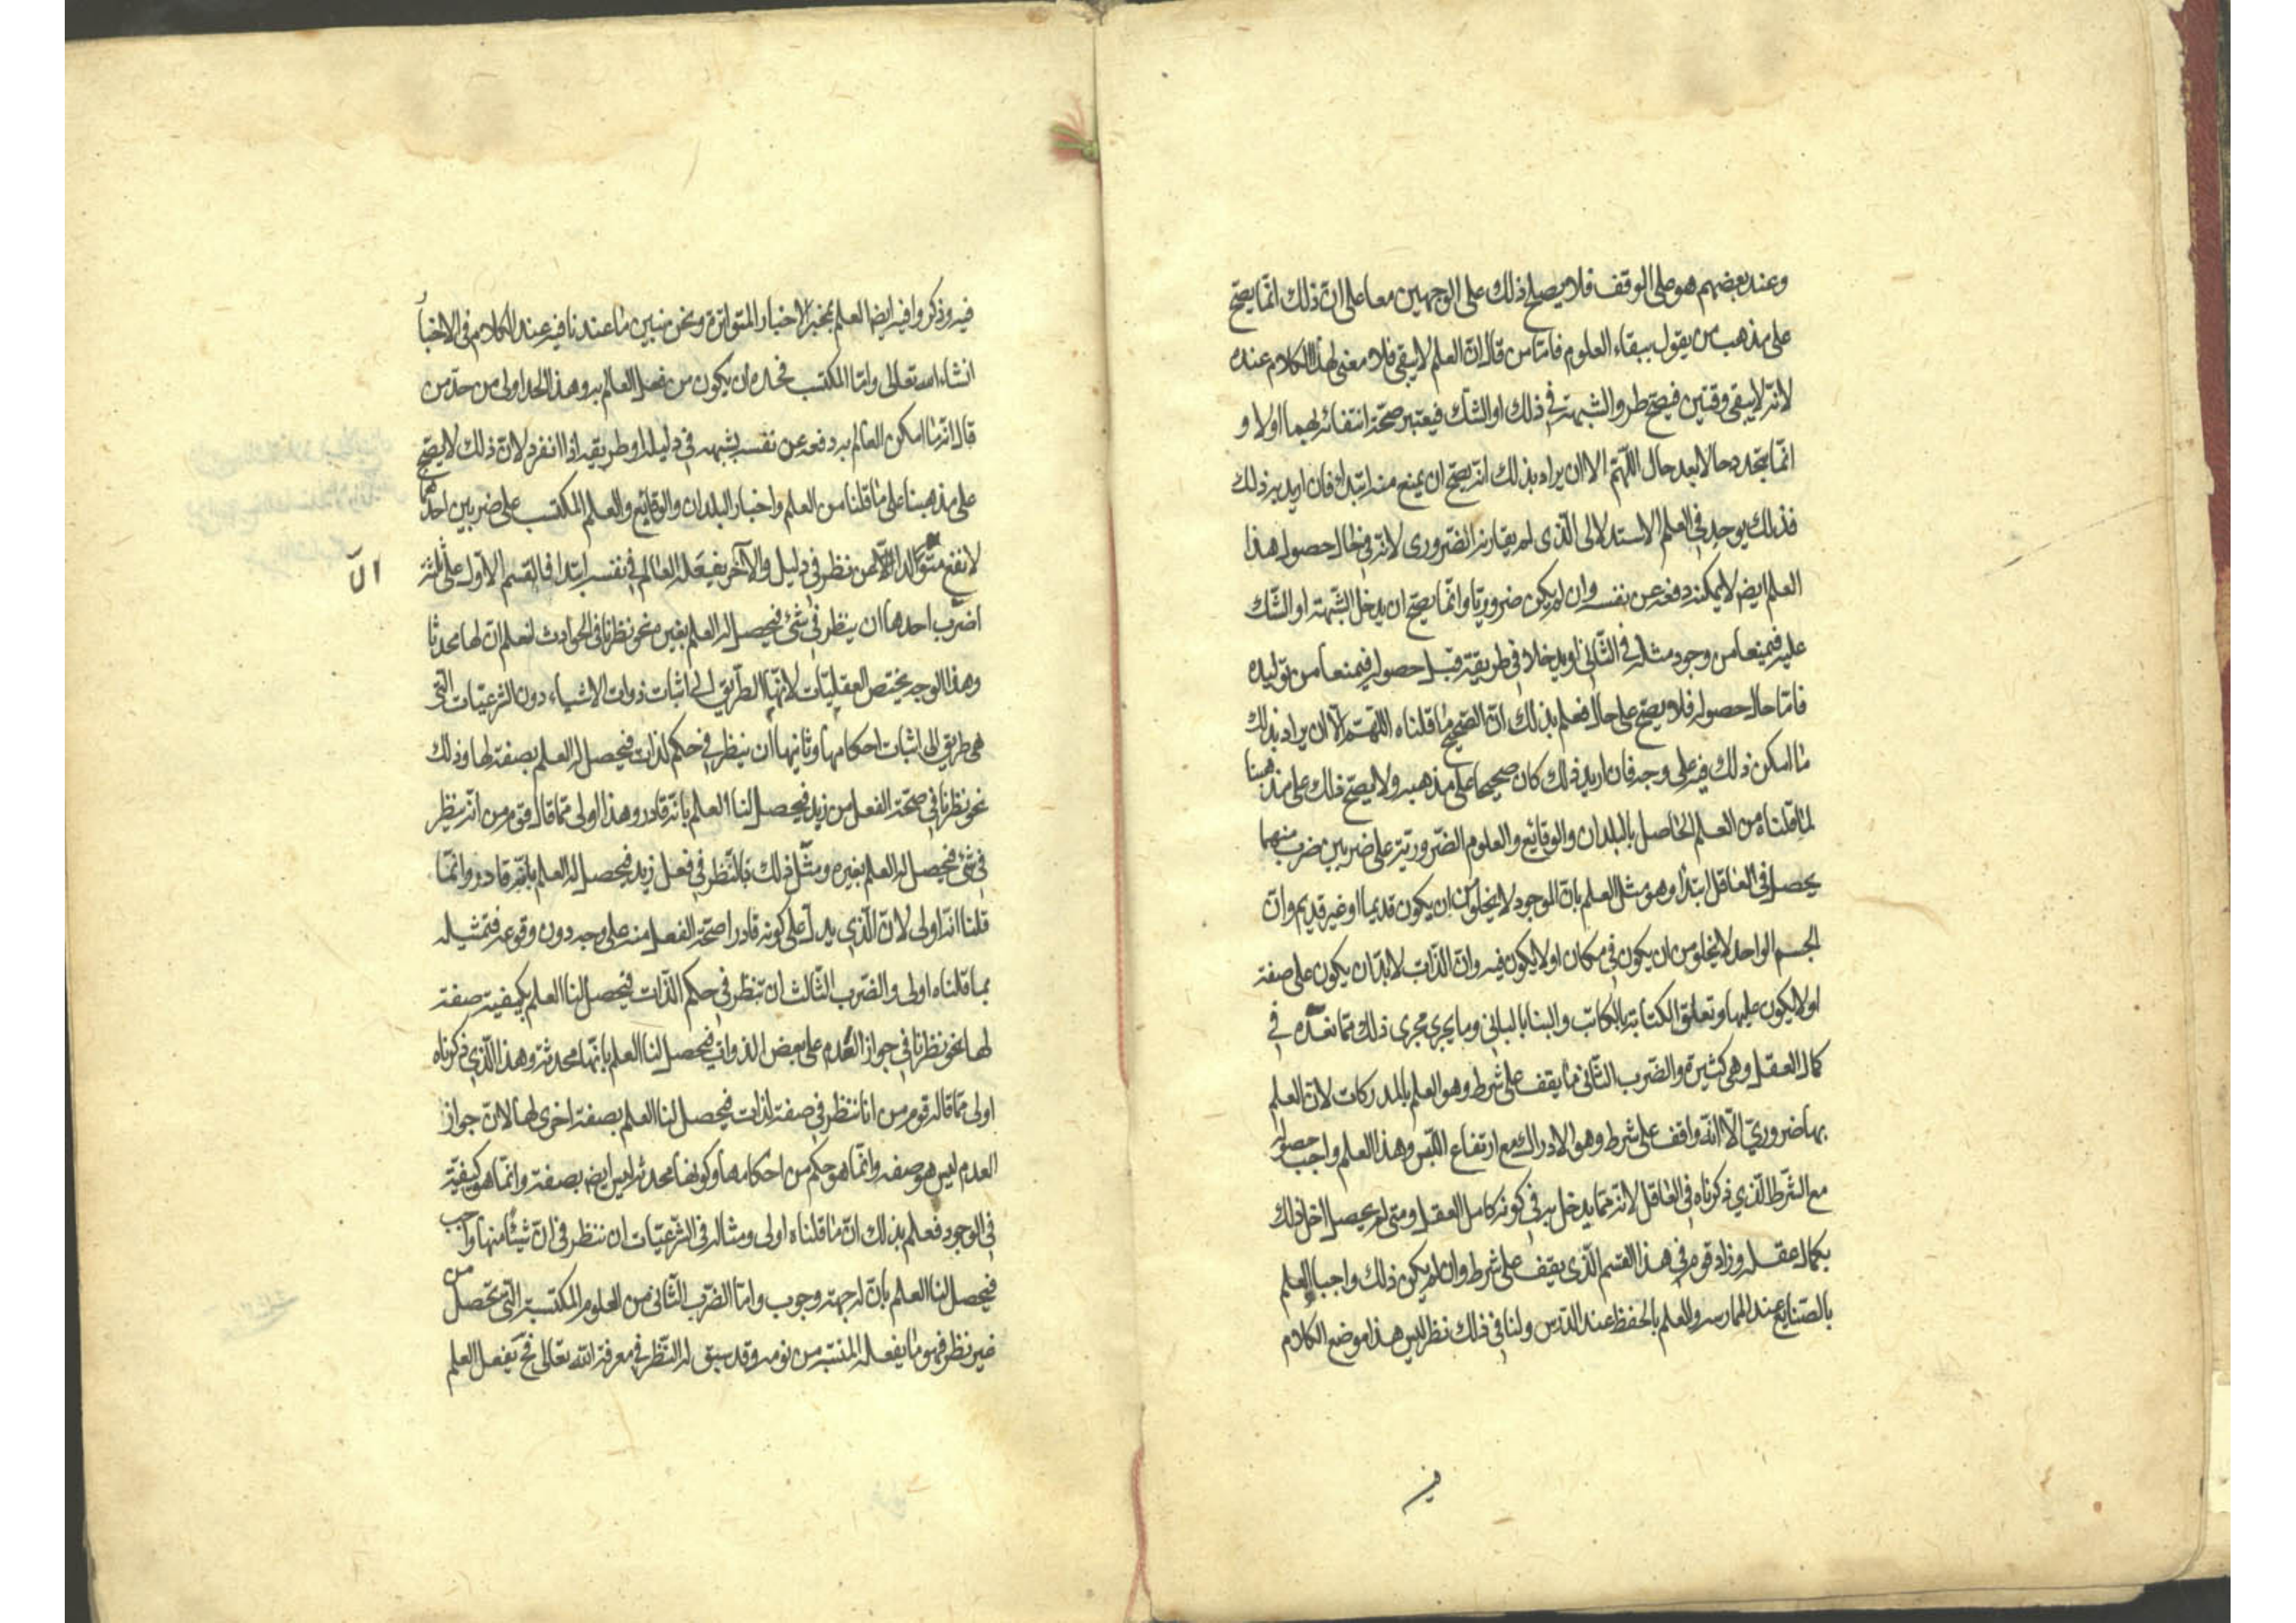 وعند بعضهم هو على الوقف فلا يصلح ذلك على الوجهين معا على ان ذلك انما يصح
على مذهب من يقول ببقاء العلوم فاما من قال ان العلم لا يبقى فلا معنى لهذا الكلام عنده
لانه لا يبقى وقتين فيصح طرو الشبهة في ذلك او الشك فيعتبر صحة انتفائه بهما اولا و
انما يتجدد حالا بعد حال اللهم الا ان يراد بذلك انه يصح ان يمنع منه ابتداء فان اريد به ذلك
فذلك يوجد في العلم الاستدلالى الذى لم يقارنه الضرورى لانه في حال حصول هذا
العلم ايضا لا يمكنه دفعه عن نفسه وان لم يكن ضروريا وانما يصح ان يدخل الشبهة او الشك
عليه فيمنعا من وجود مثله في الثاني او يدخلا في طريقة قبل حصوله فيمنعا من توليده
فاما حال حصوله فلا يصح على حال فعلم بذلك ان الصحيح ما قلناه اللهم الا ان يراد بذلك
ما امكن ذلك فيه على وجه فان اريد ذلك كان صحيحا على مذهبه ولا يصح ذلك على مذهبنا
لما قلناه من العلم الحاصل بالبلدان والوقايع والعلوم الضرورية على ضربين ضرب منهما
يحصل في العاقل ابتداء وهو مثل العلم بان الموجود لا يخلو من ان يكون قديما او غير قديم وان
الجسم الواحد لا يخلو من ان يكون في مكان او لا يكون فيه وان الذات لا بد ان يكون على صفة
او لا يكون عليها وتعلق الكتابة بالكاتب والبنا بالباني وما يجرى مجرى ذلك مما نعده في
كمال العقل وهى كثيرة والضرب الثاني ما يقف على شرط وهو العلم بالمدركات لان العلم
بها ضروري الا انه واقف على شرط وهو الادراك مع ارتفاع اللبس وهذا العلم واجب حصوله
مع الشرط الذي ذكرناه في العاقل لانه مما يدخل به في كونه كامل العقل ومتى لم يحصل اخل ذلك
بكمال عقله وزاد قوم في هذا القسم الذى يقف على شرط وان لم يكن ذلك واجبا العلم
بالصنايع عند الممارسه والعلم بالحفظ عند الدرس ولنا في ذلك نظر ليس هذا موضع الكلام
فيه
فيه وذكروا فيه ايضا العلم بمخبر الاخبار المتواترة ونحن نبين ما عندنا فيه عند الكلام في الاخبار
انشاء الله تعالى واما المكتسب فحده ان يكون من فعل العالم به وهذا الحد اولى من حد من
قال انه ما امكن العالم به دفعه عن نفسه بشبهه في دليله او طريقه اذا انفرد لان ذلك لا يصح
على مذهبنا على ما قلنا من العلم واخبار البلدان والوقايع والعلم المكتسب على ضربين احدهما
لا يقع متوالدا الا عن نظر في دليل والآخر يفعله العالم في نفسه ابتداء فالقسم الاول على ثلثة
الا
اضرب احدها ان ينظر في شئ فيحصل له العلم بغيره نحو نظرنا في الحوادث لنعلم ان لها محدثا
وهذا الوجه يختص العقليات لانها الطريق الى اثبات ذوات الاشياء دون الشرعيات التى
هى طريق الى اثبات احكامها وثانيها ان ينظر في حكم لذات فيحصل له العلم بصفة لها وذلك
نحو نظرنا في صحة الفعل من زيد فيحصل لنا العلم بانه قادر وهذا اولى مما قاله قوم من انه ينظر
في شئ فيحصل له العلم بغيره ومثل ذلك بالنظر في فعل زيد فيحصل له العلم بانه قادر وانما
قلنا انه اولى لان الذي يدل على كونه قادرا صحة الفعل منه على وجه دون وقوعه فتمثيله
بما قلناه اولى والضرب الثالث ان ننظر في حكم الذات فيحصل لنا العلم بكيفية صفة
لها نحو نظرنا في جواز العدم على بعض الذوات فيحصل لنا العلم بانها محدثة وهذا الذي ذكرناه
اولى مما قاله قوم من انا ننظر في صفة لذات فيحصل لنا العلم بصفة اخرى لها لان جواز
العدم ليس هو صفه وانما هو حكم من احكامها وكونها محدثة ليس ايضا بصفة وانما هو كيفية
في الوجود فعلم بذلك ان ما قلناه اولى ومثاله في الشرعيات ان ننظر في ان شيئا منها واجب
فيحصل لنا العلم بان له جهة وجوب واما الضرب الثاني من العلوم المكتسبة التى تحصل من
غير نظر فهو ما يفعله المنتبه من نومه وقد سبق له النظر في معرفة الله تعالى فح يفعل العلم